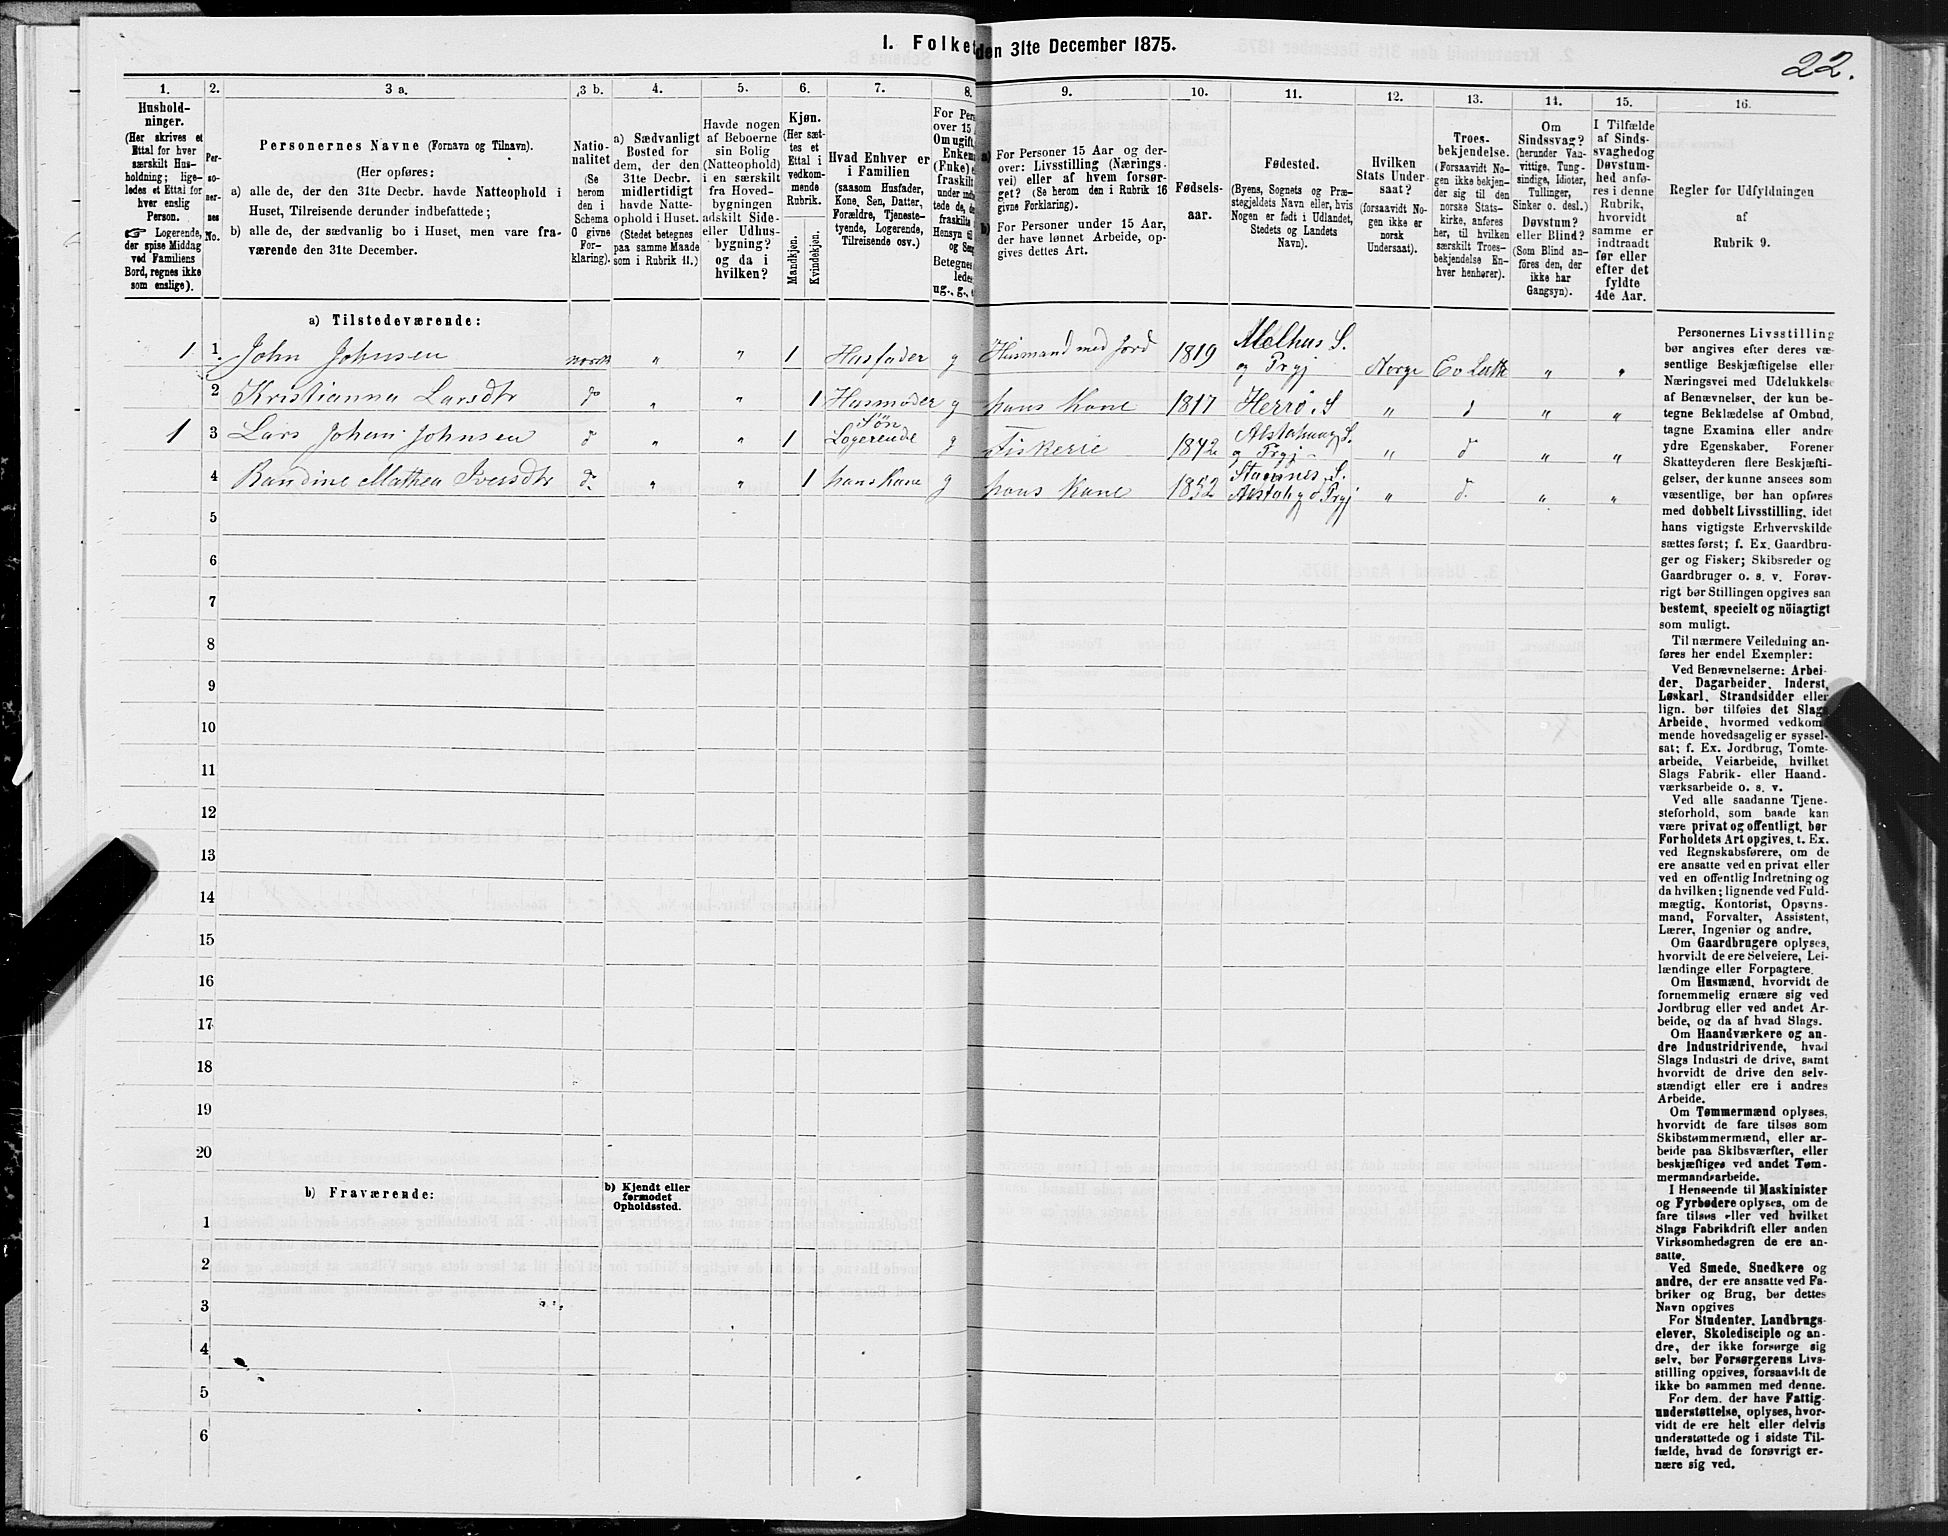 I. Folket den 31te December 1875.
22.
1. 2. 3 a. 3 b. 4. 5. 6. 7. 8. 9. 10. 11. 12. 13. 14. 15. 16.
Hushold-
ninger.
(Her skrives et
Ettal for hver
særskilt Hus-
holdning; lige-
ledes et Ettal for
hver enslig
Person.
☞ Logerende,
der spise Middag
ved Familiens
Bord, regnes ikke
som enslige).
Per-
so-
ner-
nes
No.
Personernes Navne (Fornavn og Tilnavn).
(Her opføres:
a) alle de, der den 31te Decbr. havde Natteophold i
Huset, Tilreisende derunder indbefattede;
b) alle de, der sædvanlig bo i Huset, men vare fra-
værende den 31te December.
Natio-
nalitet
(Se
herom
den i
Schema
C givne
For-
klaring).
a) Sædvanligt
Bosted for
dem, der den
31te Decbr.
midlertidigt
havde Natte-
ophold i Huset.
(Stedet betegnes
paa samme Maade
som i Rubrik 11.)
Havde nogen
af Beboerne
sin Bolig
(Natteophold)
i en særskilt
fra Hoved-
bygningen
adskilt Side-
eller Udhus-
bygning?
og da i
hvilken?
Kjøn.
(Her sæt-
tes et
Ettal i
vedkom-
mende
Rubrik.
Mandkjøn.
Kvindekjøn.
Hvad Enhver er
i Familien
(saasom Husfader,
Kone, Søn, Datter,
Forældre, Tjeneste-
tyende, Logerende,
Tilreisende osv.)
For Pers
over 15
Om ugift,
Enkem
(Enke) e
fraskilt
under inds
tede de, de
fraskilte
Hensyn til
og Sen
Betegnes
ledes
ug., g., e
a)
For Personer 15 Aar og der-
over: Livsstilling (Nærings-
vei) eller af hvem forsør-
get? (Se herom den i Rubrik 16
givne Forklaring).
b)
For Personer under 15 Aar,
der have lønnet Arbeide, op-
gives dettes Art.
Fødsels-
aar.
Fødested.
(Byens, Sognets og Præ-
stegjeldets Navn eller, hvis
Nogen er født i Udlandet,
Stedets og Landets
Navn).
Hvilken
Stats Under-
saat?
(forsaavidt No-
gen ikke er
norsk
Undersaat).
Troes-
bekjendelse.
(Forsaavidt No-
gen ikke bekjen-
der sig til den
norske Stats-
kirke, anføres
her, til hvilken
særskilt Troes-
bekjendelse En-
hver henhører).
Om
Sindssvag?
(herunder Van-
vittige, Tung-
sindige, Idioter,
Tullinger,
Sinker o. desl.)
Døvstum?
eller Blind?
(Som Blind an-
føres den, der
ikke har
Gangsyn).
I Tilfælde
af Sinds-
svaghed og
Døvstum-
hed anfø-
res i denne
Rubrik,
hvorvidt
samme er
indtraadt
før eller
efter det
fyldte
4de Aar.
Regler for Udfyldningen
af
Rubrik 9.
a) Tilstedeværende:
1 1. John Johnsen norsk „ „ 1 Husfader g Husmand med Jord 1819 Melhus S. og Prgj Norge Ev Luth „ „
2 Kristianna Larsdtr d° „ „ 1 Husmoder g hans Kone 1817 Herrø S „ d „ „
1 3 Lars Johan Johnsen d° „ „ 1 Søn Logerende g Fiskerie 1842 Alstahaug S. og Prgj „ d° „ „
4 Randine Mathea Iversdtr d°. „ „ 1 hans Kone g hans Kone 1852 Stamnes S. Alstahg Prgj „ d°. „ „
5
6
7
8
9
10
11
12
13
14
15
16
17
18
19
20
b) Fraværende:
b) Kjendt eller
formodet
Opholdssted.
1
2
3
4
5
6
Personernes Livsstilling
bør angives efter deres væ-
sentlige Beskjæftigelse eller
Næringsvei med Udelukkelse
af Benævnelser, der kun be-
tegne Beklædelse af Ombud,
tagne Examina eller andre
ydre Egenskaber. Forener
Skatteyderen flere Beskjæfti-
gelser, der kunne ansees som
væsentlige, bør han opføres
med dobbelt Livsstilling, idet
hans vigtigste Erhvervskilde
sættes først; f. Ex. Gaardbru-
ger og Fisker; Skibsreder og
Gaardbruger o. s. v. Forøv-
rigt bør Stillingen opgives saa
bestemt, specielt og nöiagtigt
som muligt.
Til nærmere Veiledning an-
føres her endel Exempler:
Ved Benævnelserne: Arbei-
der, Dagarbeider, Inderst,
Løskarl, Strandsidder eller
lign. bør tilføies det Slags
Arbeide, hvormed vedkom-
mende hovedsagelig er syssel-
sat; f. Ex. Jordbrug, Tomte-
arbeide, Veiarbeide, hvilket
Slags Fabrik- eller Haand-
værksarbeide o. s. v.
Ved alle saadanne Tjene-
steforhold, som baade kan
være privat og offentligt, bør
Forholdets Art opgives, t. Ex.
ved Regnskabsførere, om de
ere ansatte ved en privat eller
ved en offentlig Indretning og
da hvilken; lignende ved Fuld-
mægtig, Kontorist, Opsyns-
mand, Forvalter, Assistent,
Lærer, Ingeniør og andre.
Om Gaardbrugere oplyses,
hvorvidt de ere Selveiere, Lei-
lændinge eller Forpagtere.
Om Husmænd, hvorvidt de
fornemmelig ernære sig ved
Jordbrug eller ved andet Ar-
beide, og da af hvad Slags.
Om Haandværkere og an-
dre Industridrivende, hvad
Slags Industri de drive, samt
hvorvidt de drive den selv-
stændigt eller ere i andres
Arbeide.
Om Tømmermænd oplyses,
hvorvidt de fare tilsøs som
Skibstømmermænd, eller ar-
beide paa Skibsværfter, eller
beskjæftiges ved andet Tøm-
mermandsarbeide.
I Henseende til Maskinister
og Fyrbødere oplyses, om de
fare tilsøs eller ved hvilket
Slags Fabrikdrift eller anden
Virksomhedsgren de ere an-
satte.
Ved Smede, Snedkere og
andre, der ere ansatte ved Fa-
briker og Brug, bør dettes
Navn opgives
For Studenter, Landbrugs-
elever, Skoledisciple og an-
dre, der ikke forsørge sig
selv, bør Forsørgerens Livs-
stilling opgives, forsaavidt de
ikke bo sammen med denne.
For dem, der have Fattig-
understøttelse, oplyses, hvor-
vidt de ere helt eller delvis
understøttede og i sidste Til-
fælde, hvad de forøvrigt er-
nære sig ved.